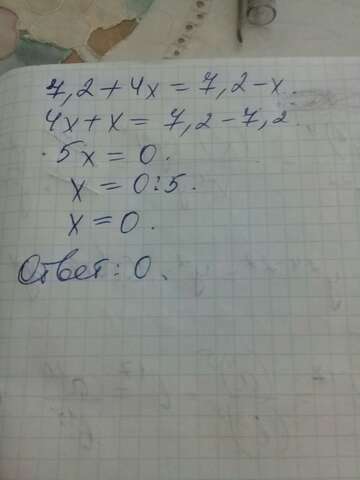 7,2+4x=7,2-x.
4x+x=7,2-7,2.
5x=0.
x=0:5.
x=0.
Ответ: 0.